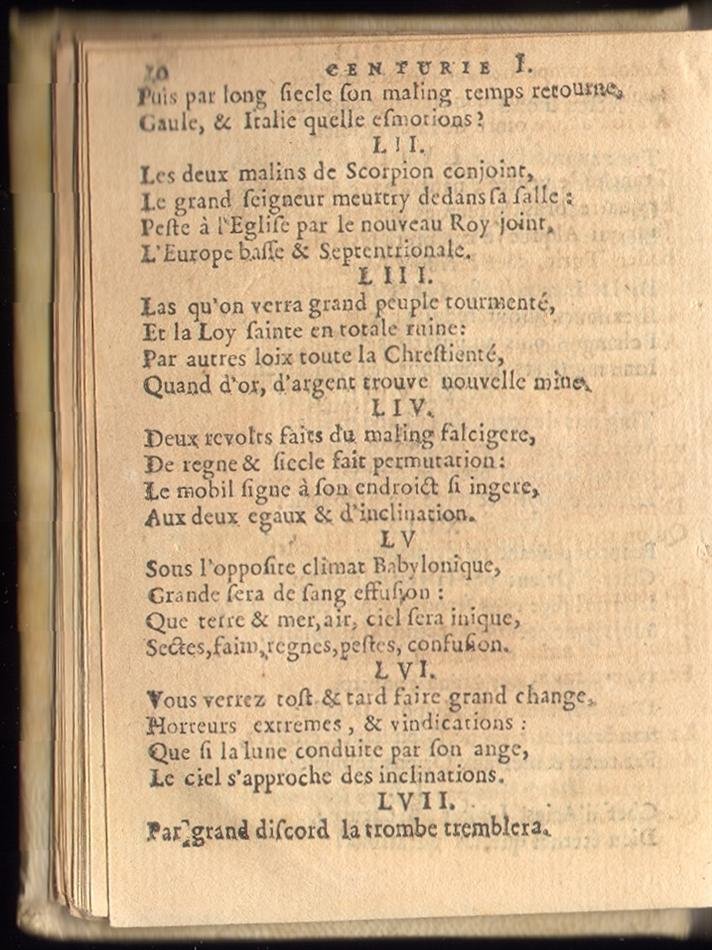 20 CENTURIE I.
Puis par long ſiecle ſon maling temps retourne,
Gaule, & Italie quelle eſmotions?
LII.
Les deux malins de Scorpion conjoint,
Le grand ſeigneur meurtry dedans ſa ſalle:
Peſte à l'Egliſe par le nouveau Roy joint,
L'Europe baſſe & Septentrionale.
LIII.
Las qu'on verra grand peuple tourmenté,
Et la Loy ſainte en totale ruine:
Par autres loix toute la Chreſtienté,
Quand d'or, d'argent trouve nouvelle mine.
LIV.
Deux revolts faits du maling falcigere,
De regne & ſiecle fait permutation:
Le mobil ſigne à ſon endroict ſi ingere,
Aux deux egaux & d'inclination.
LV
Sous l'oppoſite climat Babylonique,
Grande ſera de ſang effuſion:
Que terre & mer, air, ciel ſera inique,
Sectes, faim, regnes, peſtes, confuſion.
LVI.
Vous verrez toſt & tard faire grand change,
Horreurs extremes, & vindications:
Que ſi la lune conduite par ſon ange,
Le ciel s'approche des inclinations.
LVII.
Par grand diſcord la trombe tremblera.